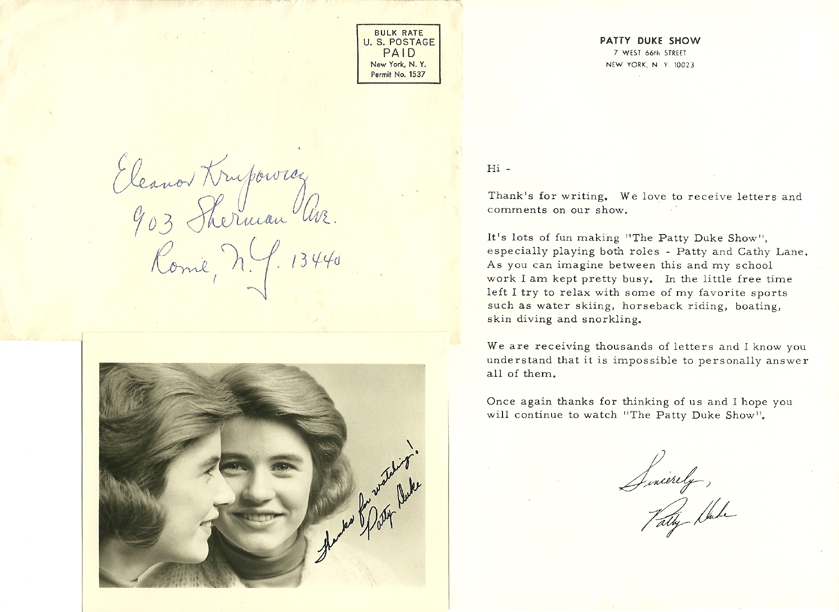 BULK RATE
U. S. POSTAGE
PAID
New York, N. Y.
Permit No. 1537
Eleanor Krupowicz
903 Sherman Ave.
Rome, N.Y. 13440
PATTY DUKE SHOW
7 WEST 66th STREET
NEW YORK, N Y 10023
Hi -
Thank's for writing. We love to receive letters and
comments on our show.
It's lots of fun making "The Patty Duke Show",
especially playing both roles - Patty and Cathy Lane.
As you can imagine between this and my school
work I am kept pretty busy. In the little free time
left I try to relax with some of my favorite sports
such as water skiing, horseback riding, boating,
skin diving and snorkling.
We are receiving thousands of letters and I know you
understand that it is impossible to personally answer
all of them.
Once again thanks for thinking of us and I hope you
will continue to watch "The Patty Duke Show".
Sincerely,
Patty Duke
Thanks for watching!
Patty Duke